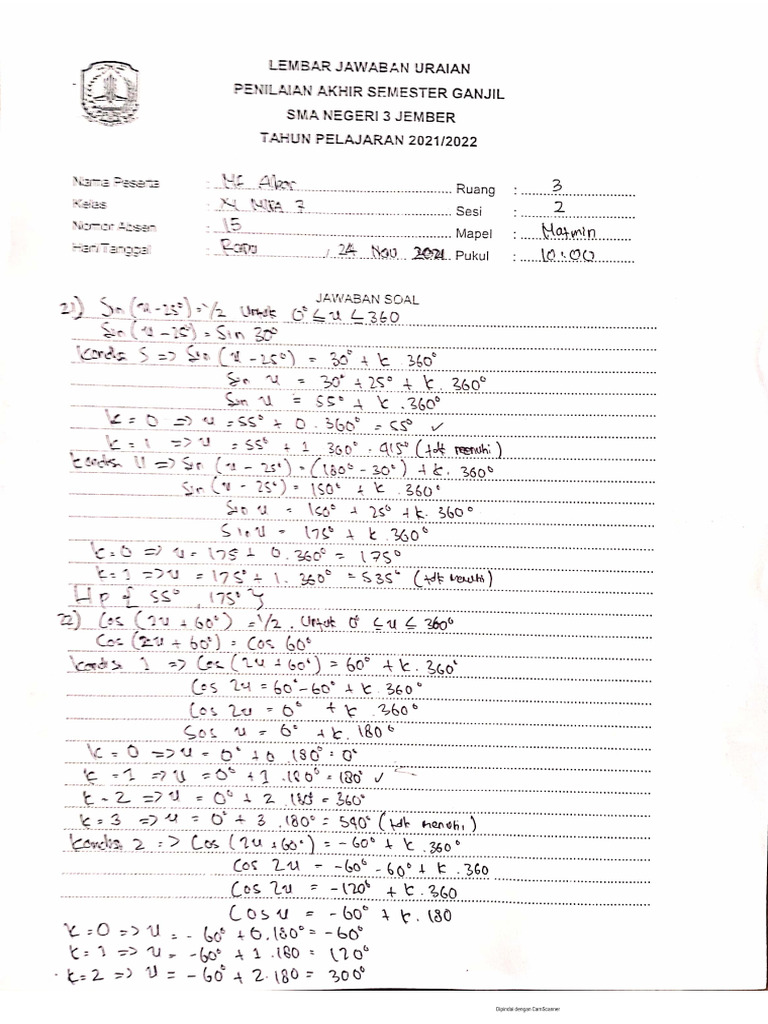 LEMBAR JAWABAN URAIAN
PENILAIAN AKHIR SEMESTER GANJIL
SMA NEGERI 3 JEMBER
TAHUN PELAJARAN 2021/2022
Nama Peserta : Ruang : 3
Kelas : XI MIPA 7 Sesi : 2
Nomor Absen : 15 Mapel : Matmin
Hari/Tanggal : Rabu, 24 Nov 2021 Pukul : 10:00
JAWABAN SOAL
21) Sin (x-25°)=1/2 Untuk 0° ≤ x ≤ 360
Sin (x-25°) = Sin 30°
Kondisi 1 => Sin (x-25°) = 30° + k.360°
Sin x = 30° + 25° + k.360°
Sin x = 55° + k.360°
k = 0 => x = 55° + 0.360° = 55° ✓
k = 1 => x = 55° + 1.360° . 415° (tdk memenuhi)
Kondisi II => Sin (x - 25°) = (180° - 30°) + k.360°
Sin (x - 25°) = 150° + k.360°
Sin x = 150° + 25° + k.360°
Sin x = 175° + k.360°
k = 0 => x = 175 + 0.360° = 175°
k = 1 => x = 175° + 1.360° = 535°
Hp { 55°, 175° }
22) Cos (2x + 60°) = 1/2. Untuk 0° ≤ x ≤ 360°
Cos (2x + 60°) = Cos 60°
Kondisi 1 => Cos (2x + 60°) = 60° + k.360°
Cos 2x = 60° - 60° + k.360°
Cos 2x = 0° + k.360°
Sos x = 0° + k.180°
k = 0 => x = 0° + 0.180° = 0°
k = 1 => x = 0° + 1.180° = 180° ✓
k = 2 => x = 0° + 2.180° = 360°
k = 3 => x = 0° + 3.180° = 540°
Kondisi 2 => Cos (2x + 60°) = -60° + k.360°
Cos 2x = -60° - 60 + k.360
Cos 2x = -120° + k.360
Cos x = -60° + k.180
k = 0 => x = -60° + 0.180° = -60°
k = 1 => x = -60° + 1.180 = 120°
k = 2 => x = -60° + 2.180 = 300°
Dipindai dengan CamScanner